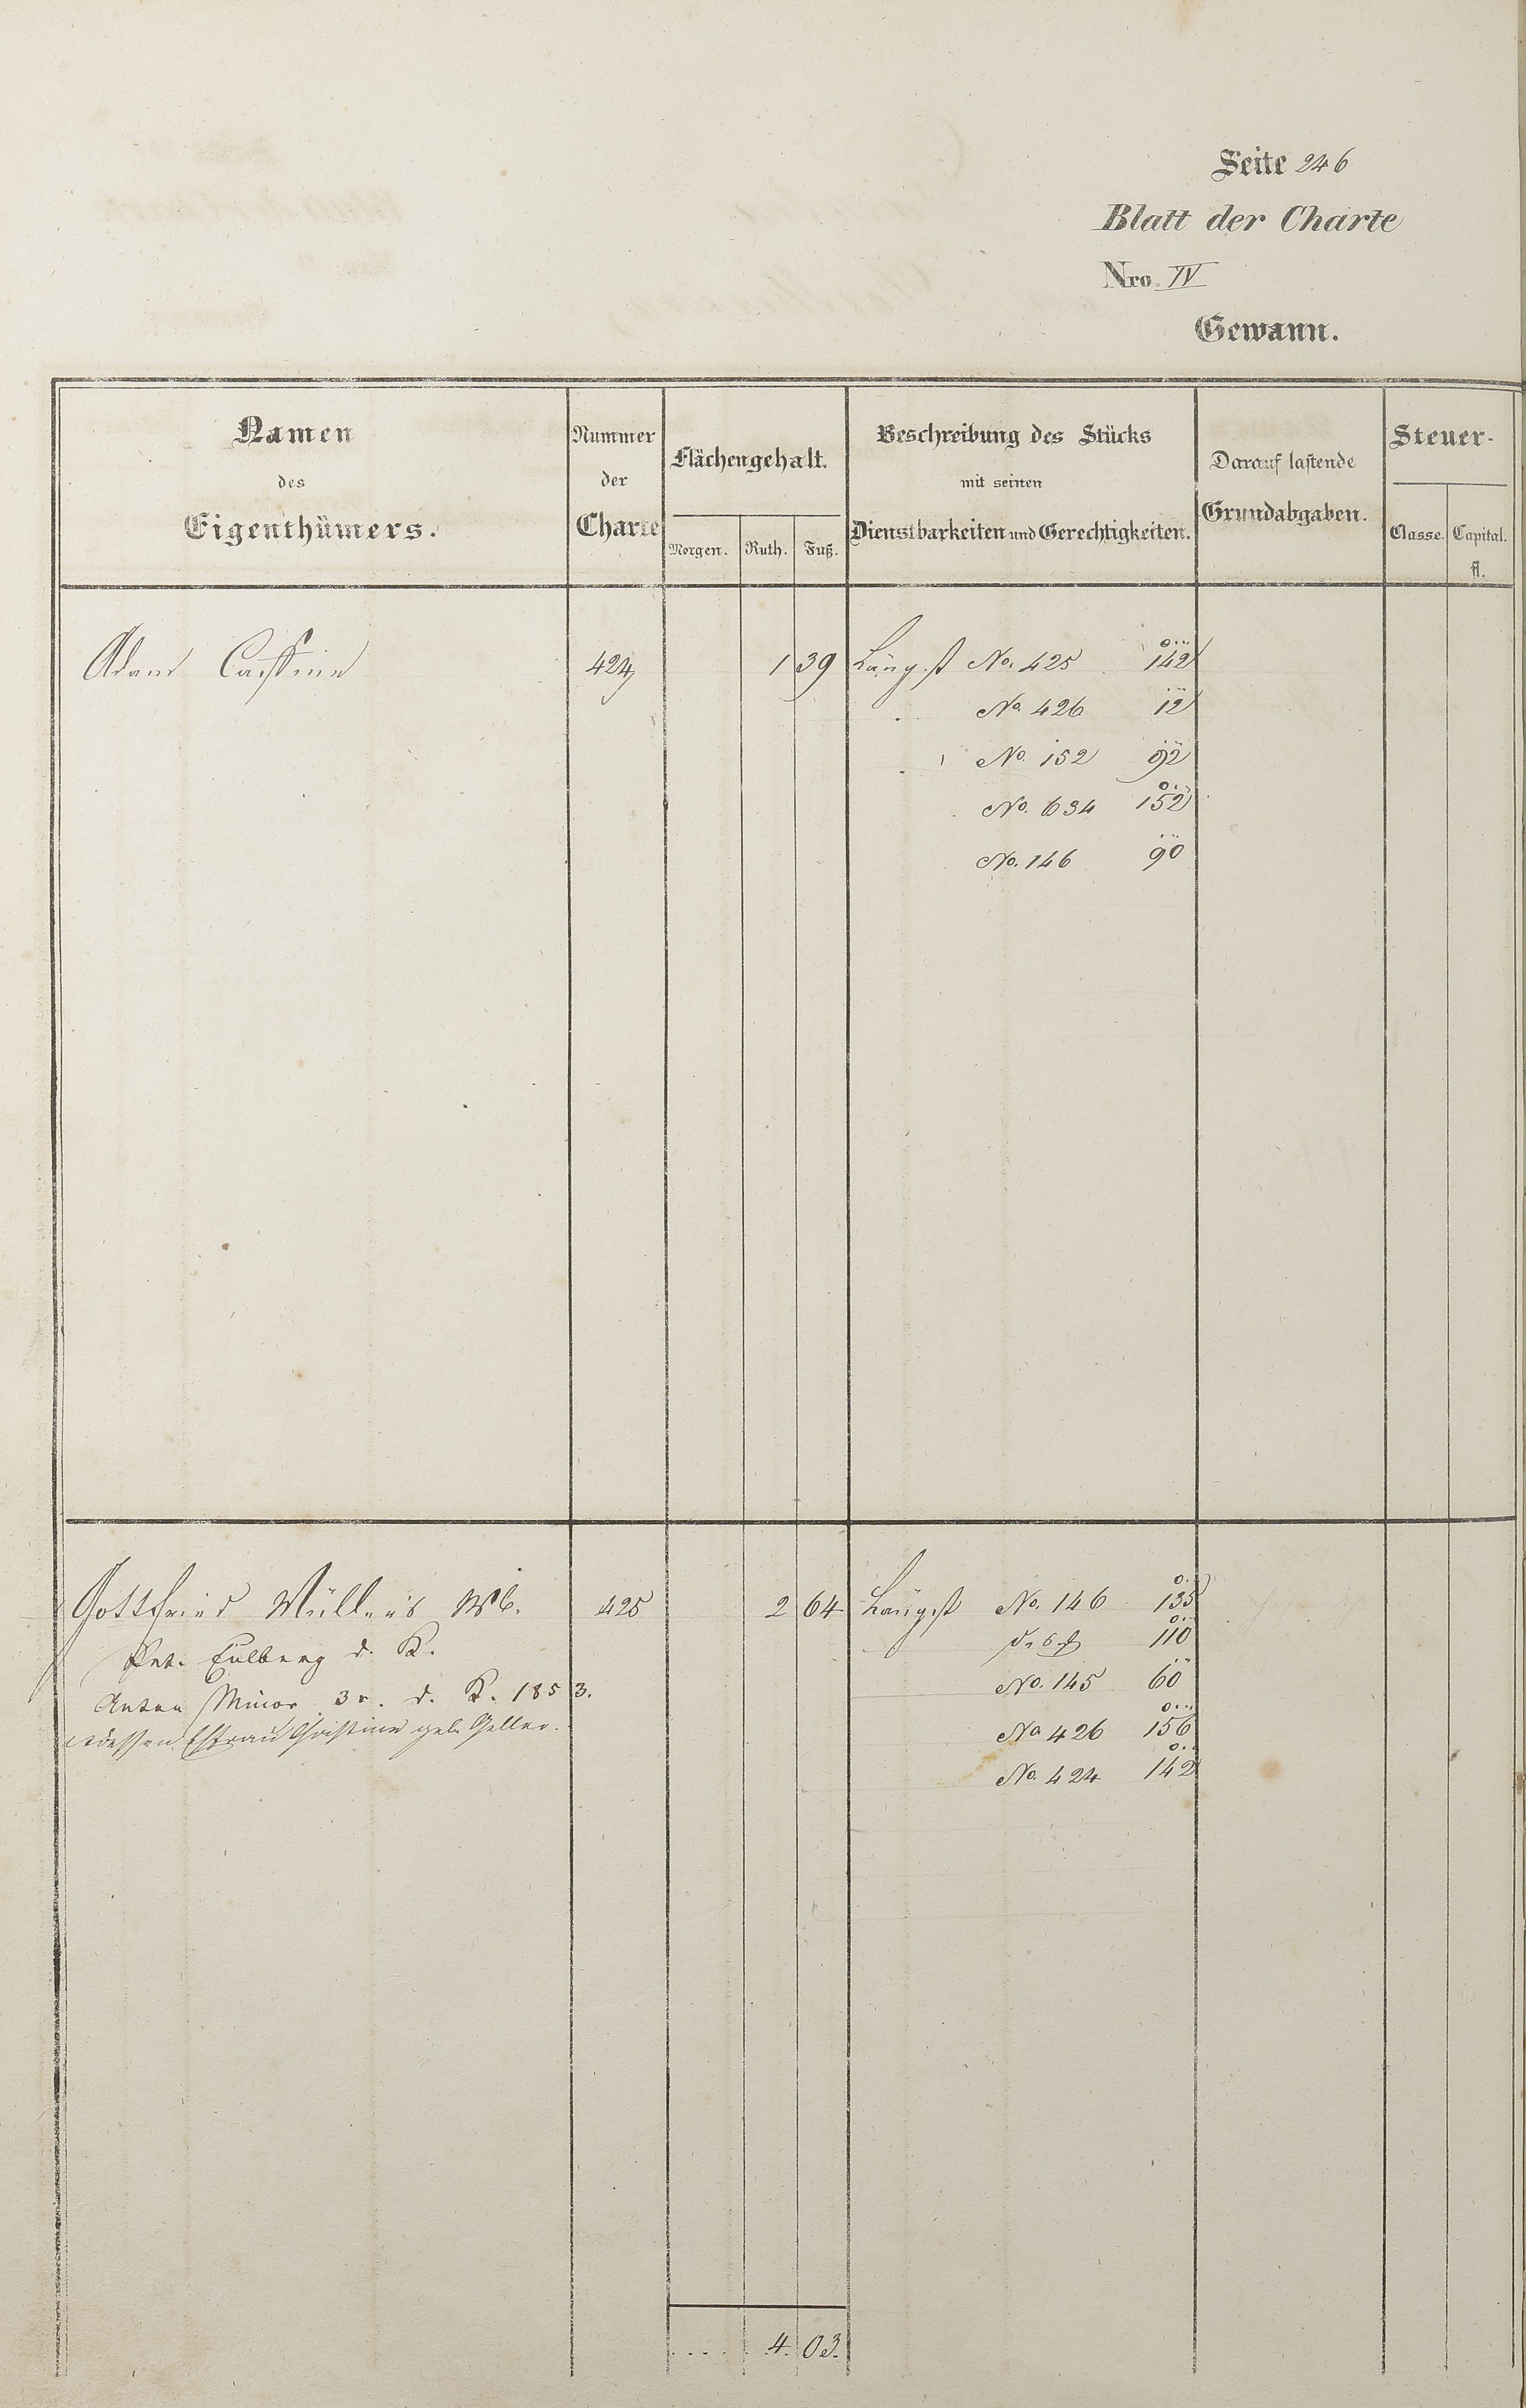 Seite 246
Blatt der Charte
Nro. IV
Gewann.
Namen des Eigenthümers.
Nummer der Charte
Flächengehalt.
Morgen. Ruth. Fuß.
Beschreibung des Stücks mit seinen Dienstbarkeiten und Gerechtigkeiten.
Darauf lastende Grundabgaben.
Steuer-
Classe. Capital. fl.
Adam 424 1 39 Längst No. 425 142
No. 426 12
No. 152 92
No. 634 152
No. 146 90
Gottfried Müller's Wb. 425 2 64 Längst No. 146 135
Pet. Eulberg d. K. 110
No. 145 60
Anton Minor 3r. d. K. 1853.
dessen Ehfrau Christine geb. Geller.
No 426 156
No. 424 142
4. 03.